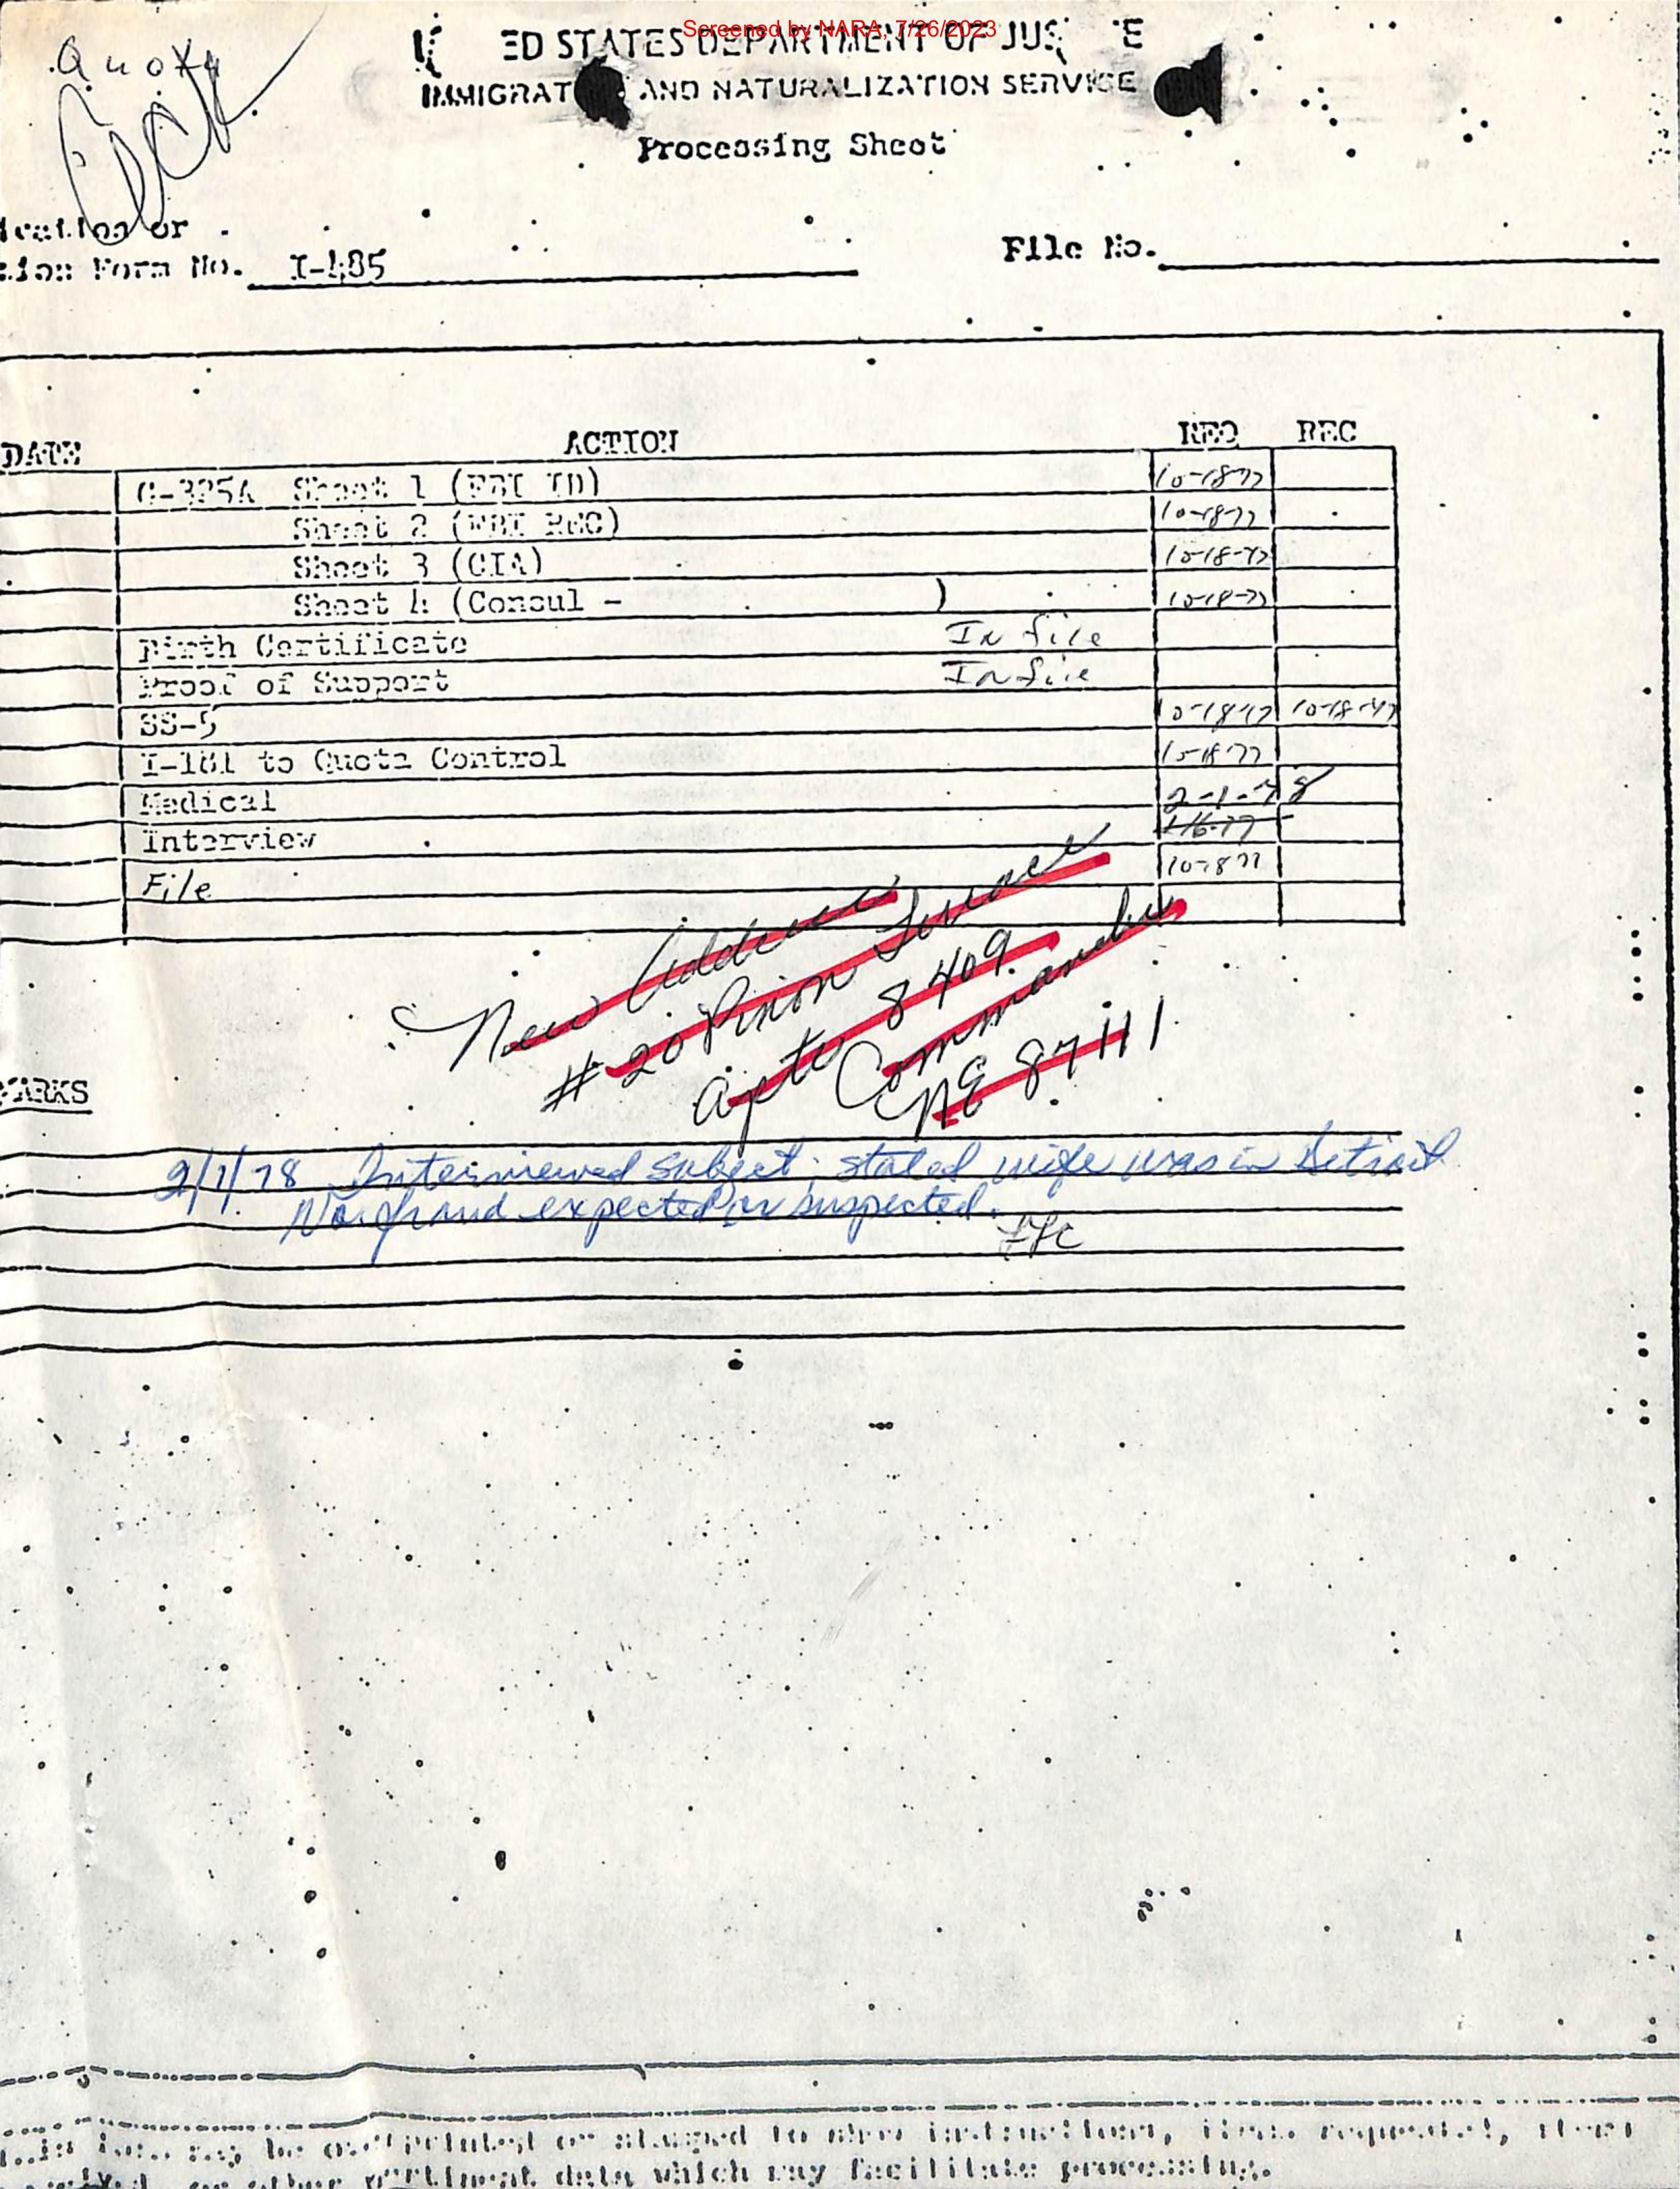 Screened by NARA, 7/26/2023
Quota
ED STATES DEPARTMENT OF JUS E
IMMIGRAT AND NATURALIZATION SERVICE
Processing Sheet
ication or
tion Form No. I-485
File No.
DATE ACTION REQ REC
G-325A Sheet 1 (FBI ID) 10-18-77
Sheet 2 (FBI REC) 10-18-77
Sheet 3 (CIA) 10-18-77
Sheet 4 (Consul - ) 10-18-77
Birth Certificate In file
Proof of Support In file
SS-5 10-18-77 10-18-77
I-181 to Quota Control 10-18-77
Medical 2-1-78
Interview
File 10-18-77
New Address
# 20 Pinon Terrace
8409
Commanche
NE 87111
MARKS
2/1/78 Interviewed subject; stated wife was in Detroit
No fraud expected or suspected.
may be or stamped to show instructions, items requested, items
or other pertinent data which may facilitate processing.